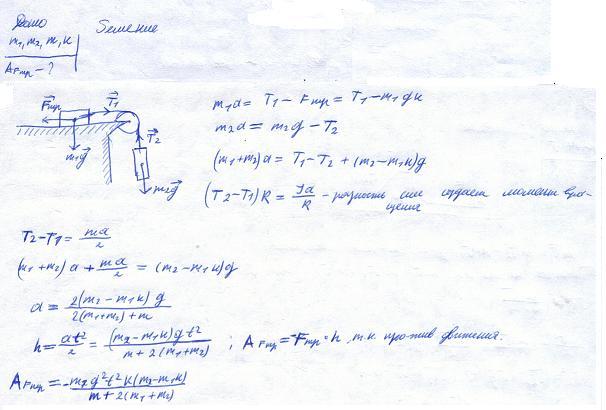 Дано
Решение
m₁, m₂, m, к
AFтр - ?
F⃗тр T⃗₁
T⃗₂
m₁g⃗
m₂g⃗
m₁a = T₁ - Fтр = T₁ - m₁gк
m₂a = m₂g - T₂
(m₁+m₂)a = T₁ - T₂ + (m₂ - m₁к)g
(T₂-T₁)R = Ja/R - разность сил создает момент вра-
щения
T₂-T₁ = ma/2
(m₁+m₂)a + ma/2 = (m₂ - m₁к)g
a = 2(m₂ - m₁к)g / 2(m₁+m₂)+m
h = at²/2 = (m₂-m₁к)gt² / m+2(m₁+m₂) ; AFтр = -Fтр·h, т.к. против движения.
AFтр = -m₁g²t²к(m₂-m₁к) / m+2(m₁+m₂)